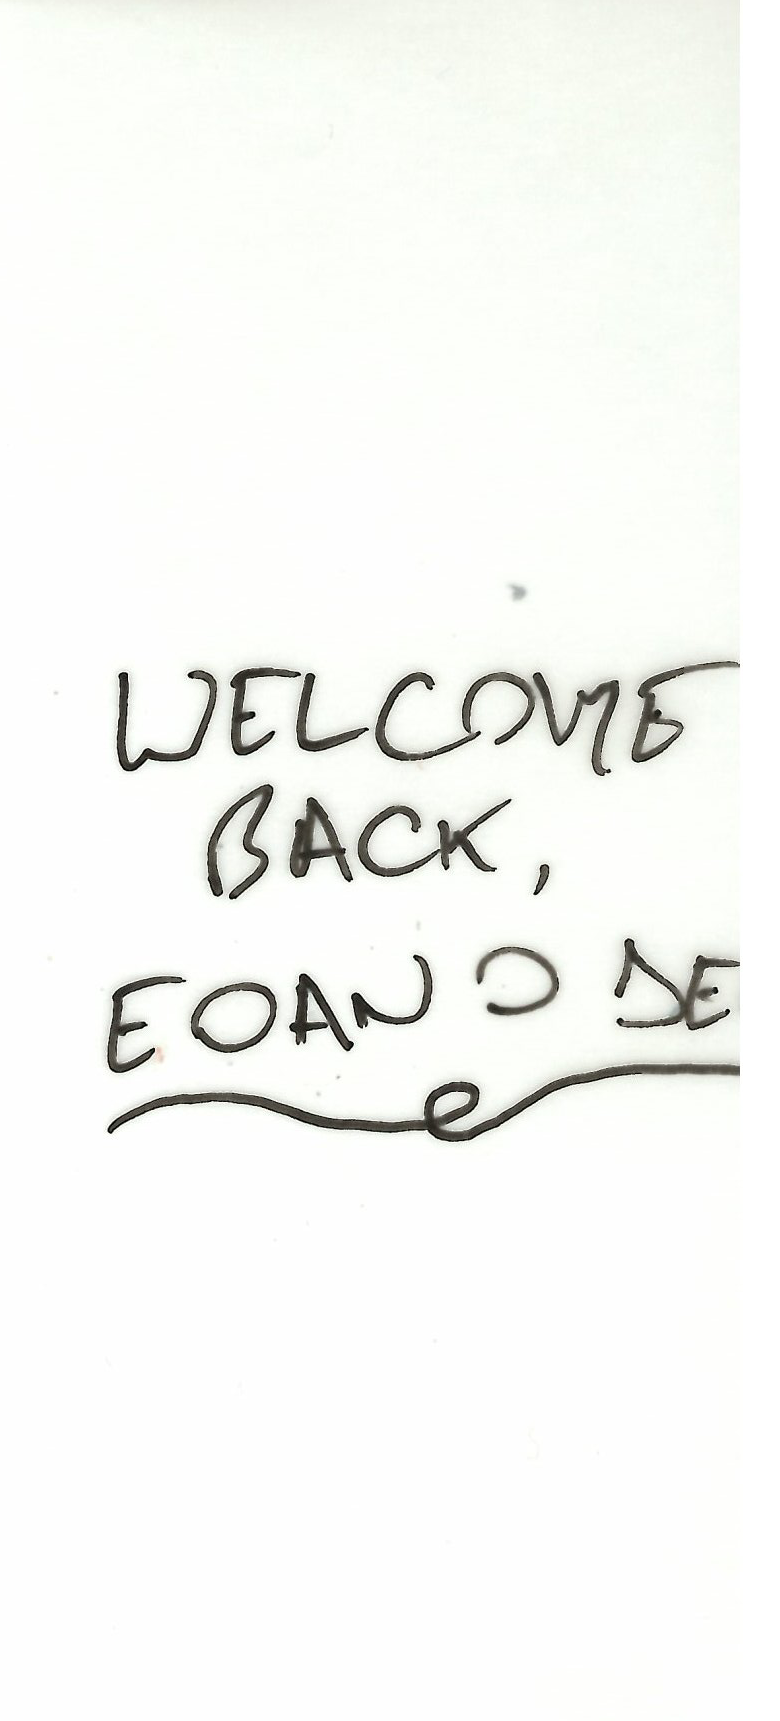 WELCOME
BACK,
EOAN